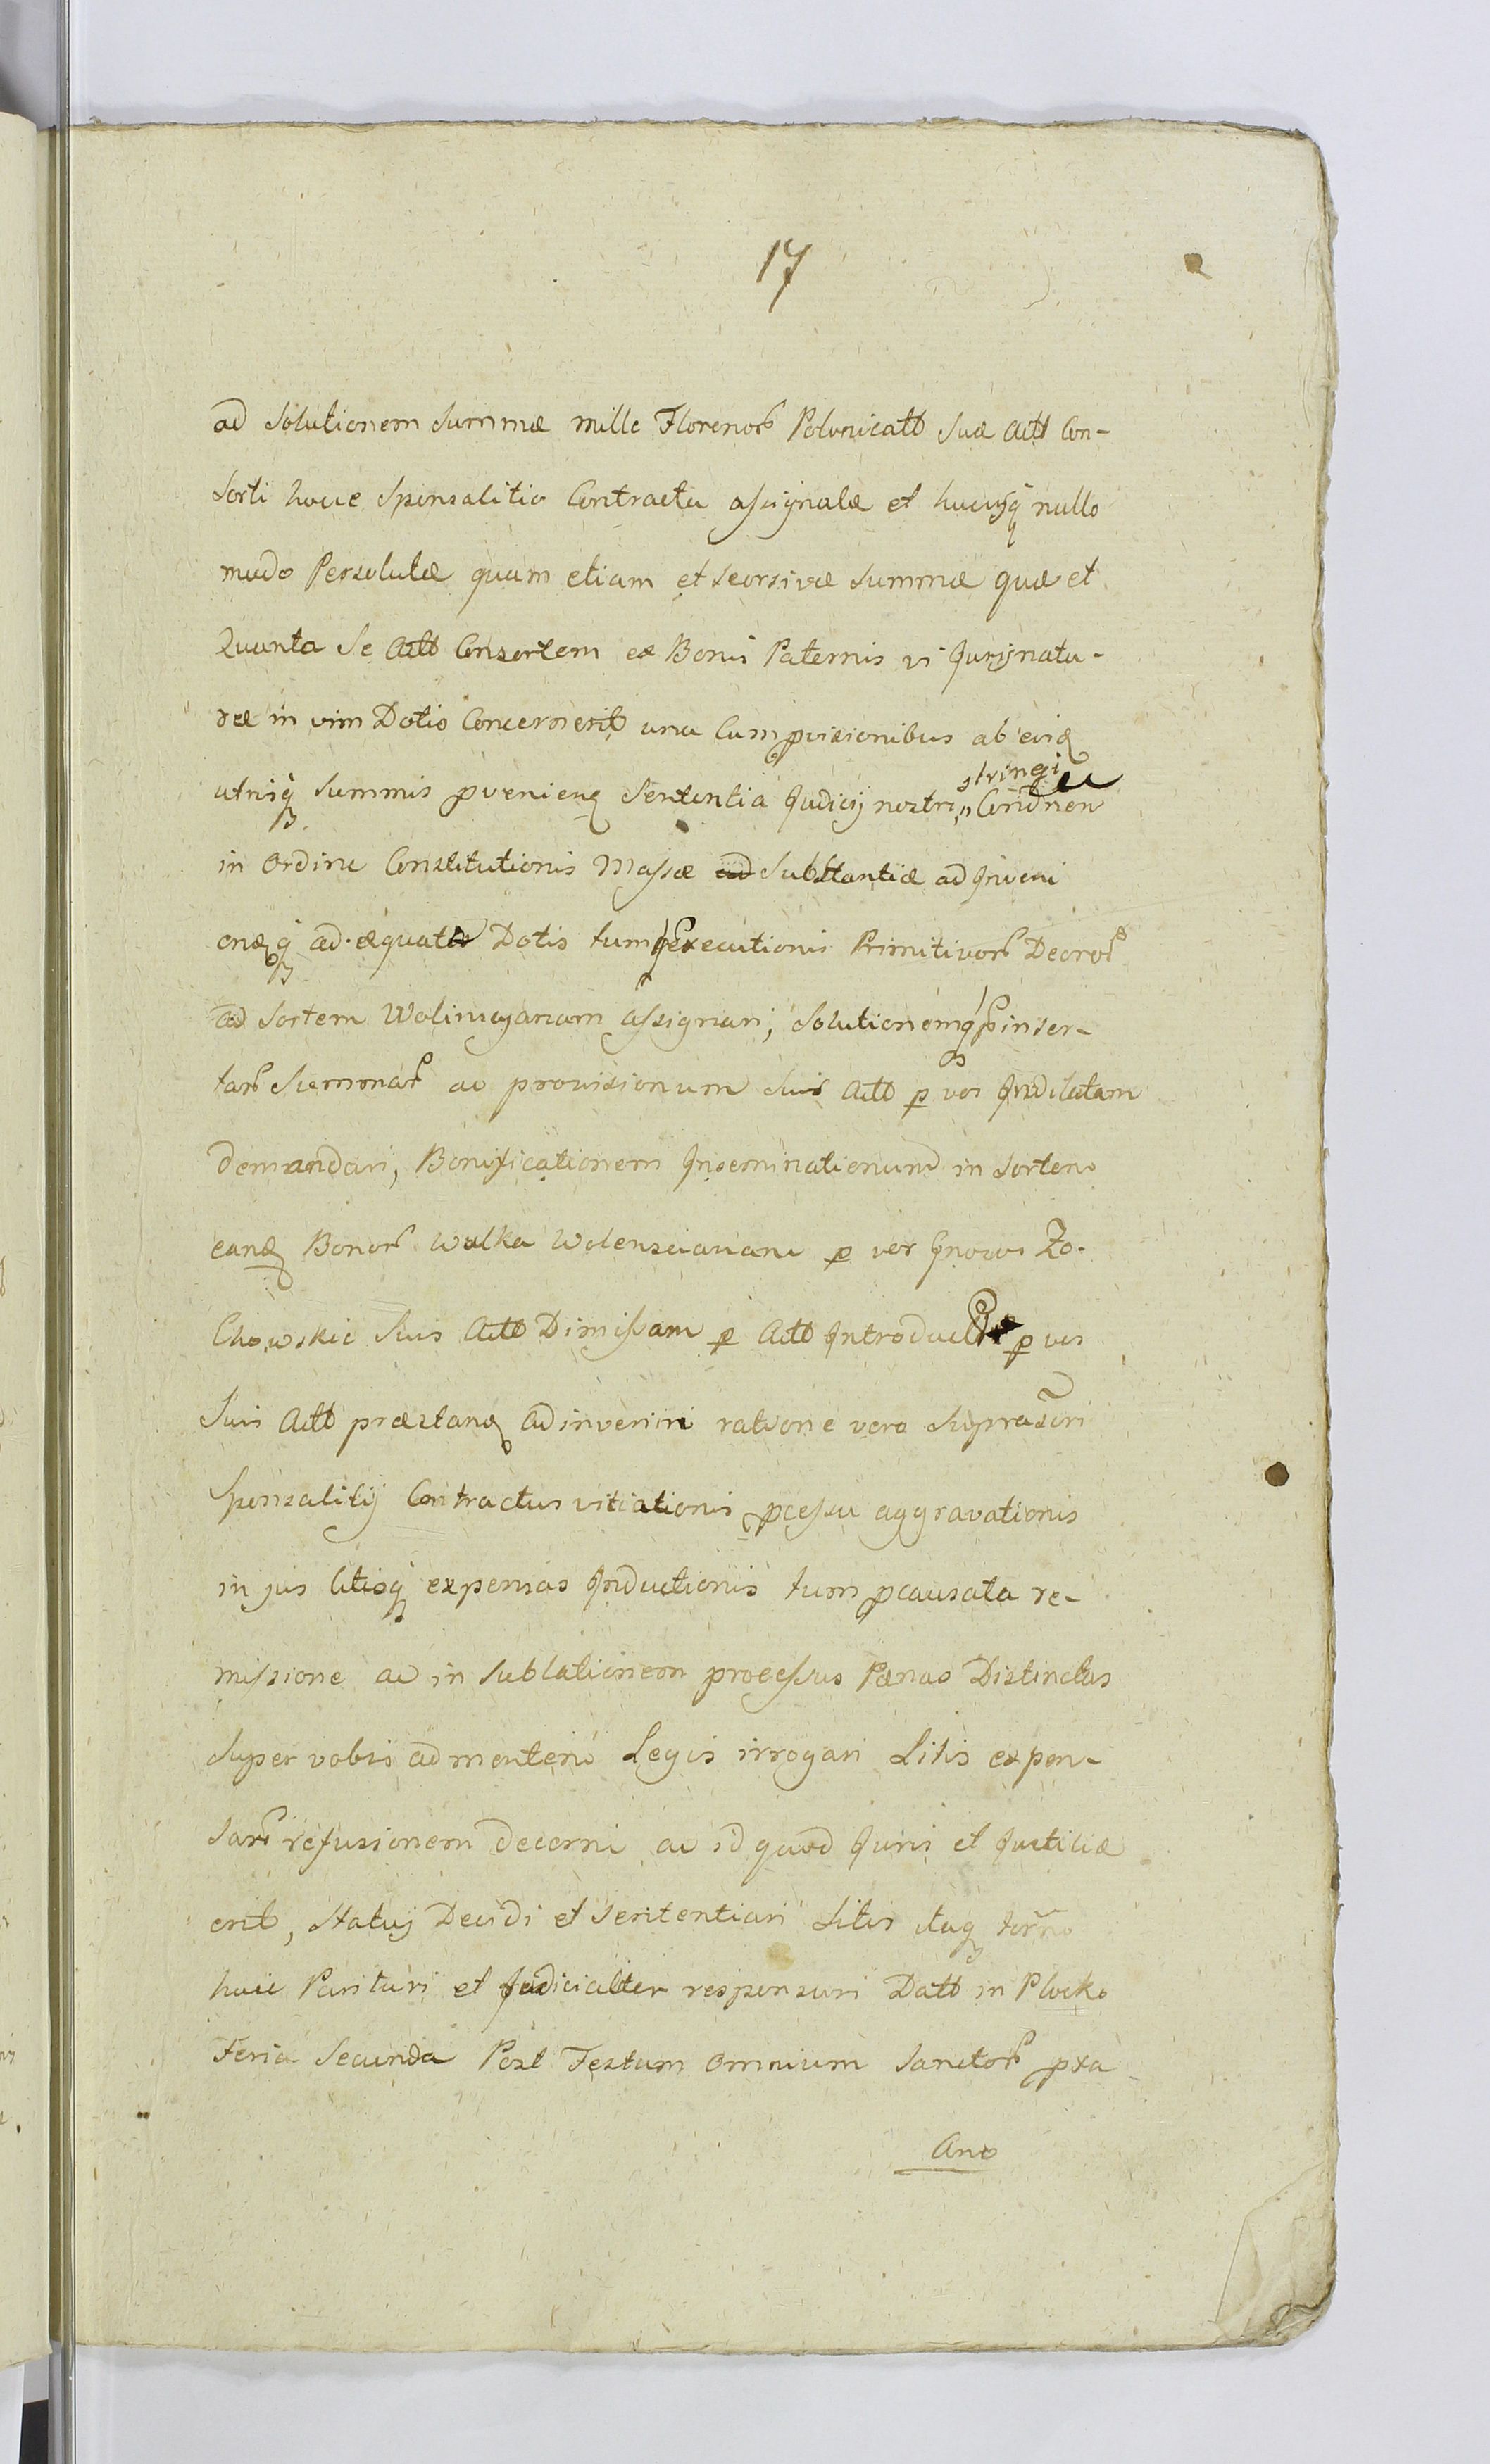 17
ad Solutionem Summæ mille Florenor Polonicall Suæ Actt Con-
sorti hocce Sponsalitio Contractu assignatæ et hucusq nullo
modo Persolutæ quam etiam et seorsivæ Summæ quæ et
Quanta Se Actt Consortem ex Bonis Paternis vi Jurisnatu-
ræ in vim Dotis Concernerit una Cum pvisionibus ab
utrisq Summis pvenien Sententia Judicij nostri stringi
in Ordine Constitutionis Massæ ad Substantiæ ad Inveni
adæquatæ Dotis tum executionis Primitivor Decror
ad Sortem assignari, Solutionemq pinser-
tar Summar ac provisionum Suis Actt p vos Indilatam
demandari, Bonificationem Inseminationum in Sortem
Bonor Wulka p vos Gnosos Zo-
Chowskie Suis Actt Dimissam p Actt p vos
Suis Actt præstan adinveniri ratione vero Suprascri
Sponsalitij Contractus vitiationis pcessu aggravationis
in jus litisq expensas Inductionis tum pcausata re-
missione ac in Sublationem processus Pænas Distinctas
Super vobis ad mentem Legis irrogari Litis expen-
sar refusionem decerni ac id quod Juris et Justitiæ
erit, Statuj Decidi et Sententiari Sitis itaq
huic Parituri et Judicialiter responsuri Datt in Plocko
Feria Secunda Post Festum Omnium Sanctor pxa
Ano